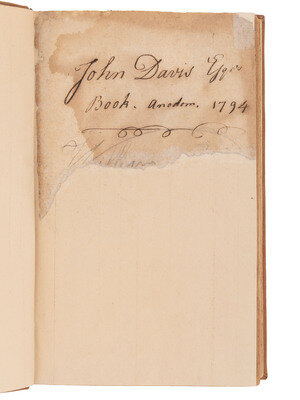 John Davis Esqr
Book. Anodom. 1794